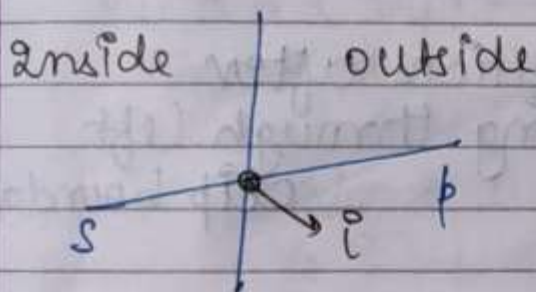 Inside outside
S i p